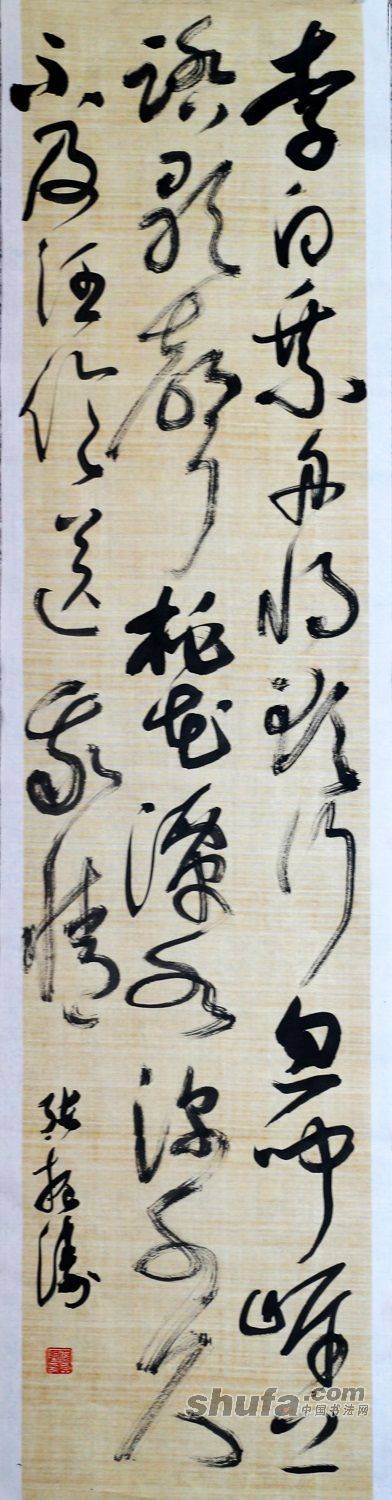 李白乘舟将欲行忽闻岸上
踏歌声桃花潭水深千尺
不及汪伦送我情
张涛
shufa.com
中国书法网